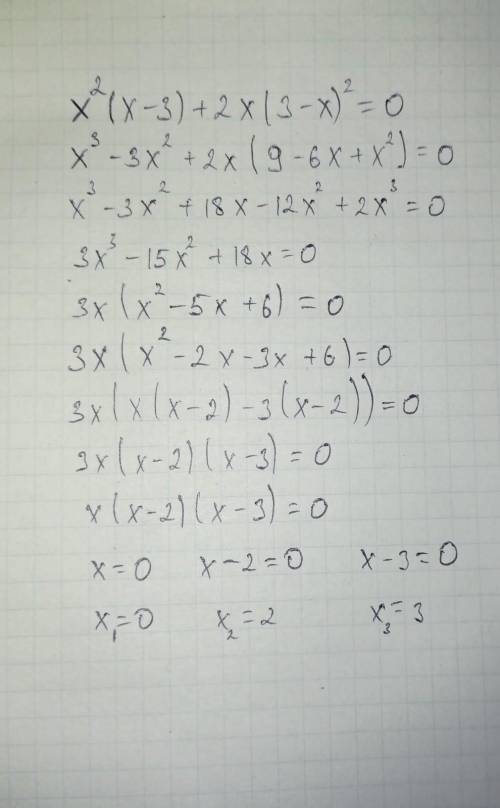 x²(x-3)+2x(3-x)²=0
x³-3x²+2x(9-6x+x²)=0
x³-3x²+18x-12x²+2x³=0
3x³-15x²+18x=0
3x(x²-5x+6)=0
3x(x²-2x-3x+6)=0
3x(x(x-2)-3(x-2))=0
3x(x-2)(x-3)=0
x(x-2)(x-3)=0
x=0 x-2=0 x-3=0
x₁=0 x₂=2 x₃=3